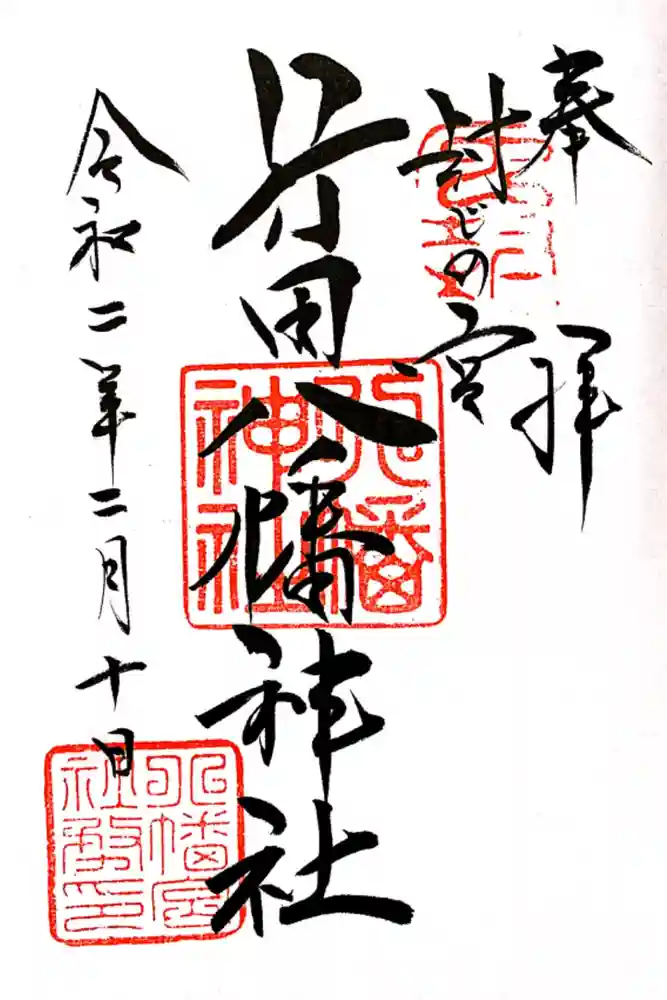 奉拝
封じの宮
田八幡神社
八幡
神社
令和二年二月十日
八幡宮